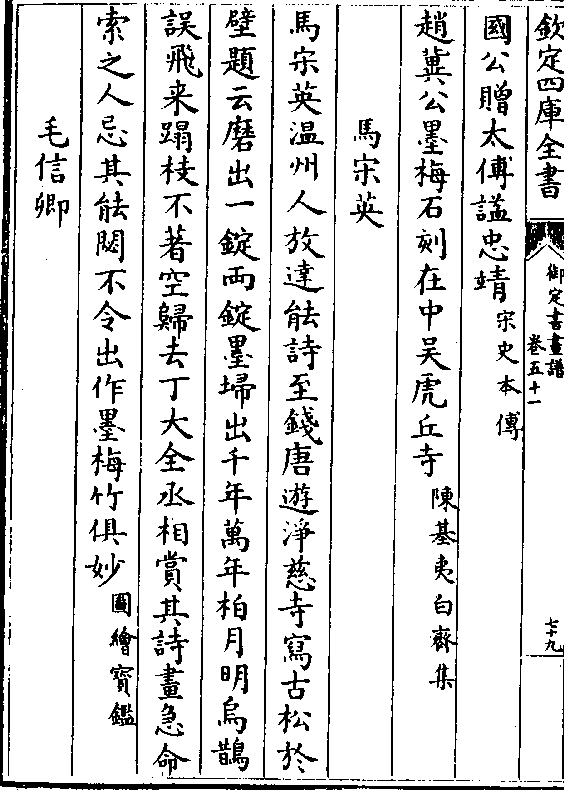 欽定四庫全書
御定書畫譜
卷五十一
七十九
國公贈太傅諡忠靖宋史本傳
趙冀公墨梅石刻在中吳虎丘寺陳基夷白齋集
馬宋英
馬宋英温州人放達能詩至錢唐遊淨慈寺寫古松於
壁題云磨出一錠兩錠墨埽出千年萬年柏月明烏鵲
誤飛来蹋枝不著空歸去丁大全丞相賞其詩畫急命
索之人忌其能閟不令出作墨梅竹俱妙圖繪寳鑑
毛信卿